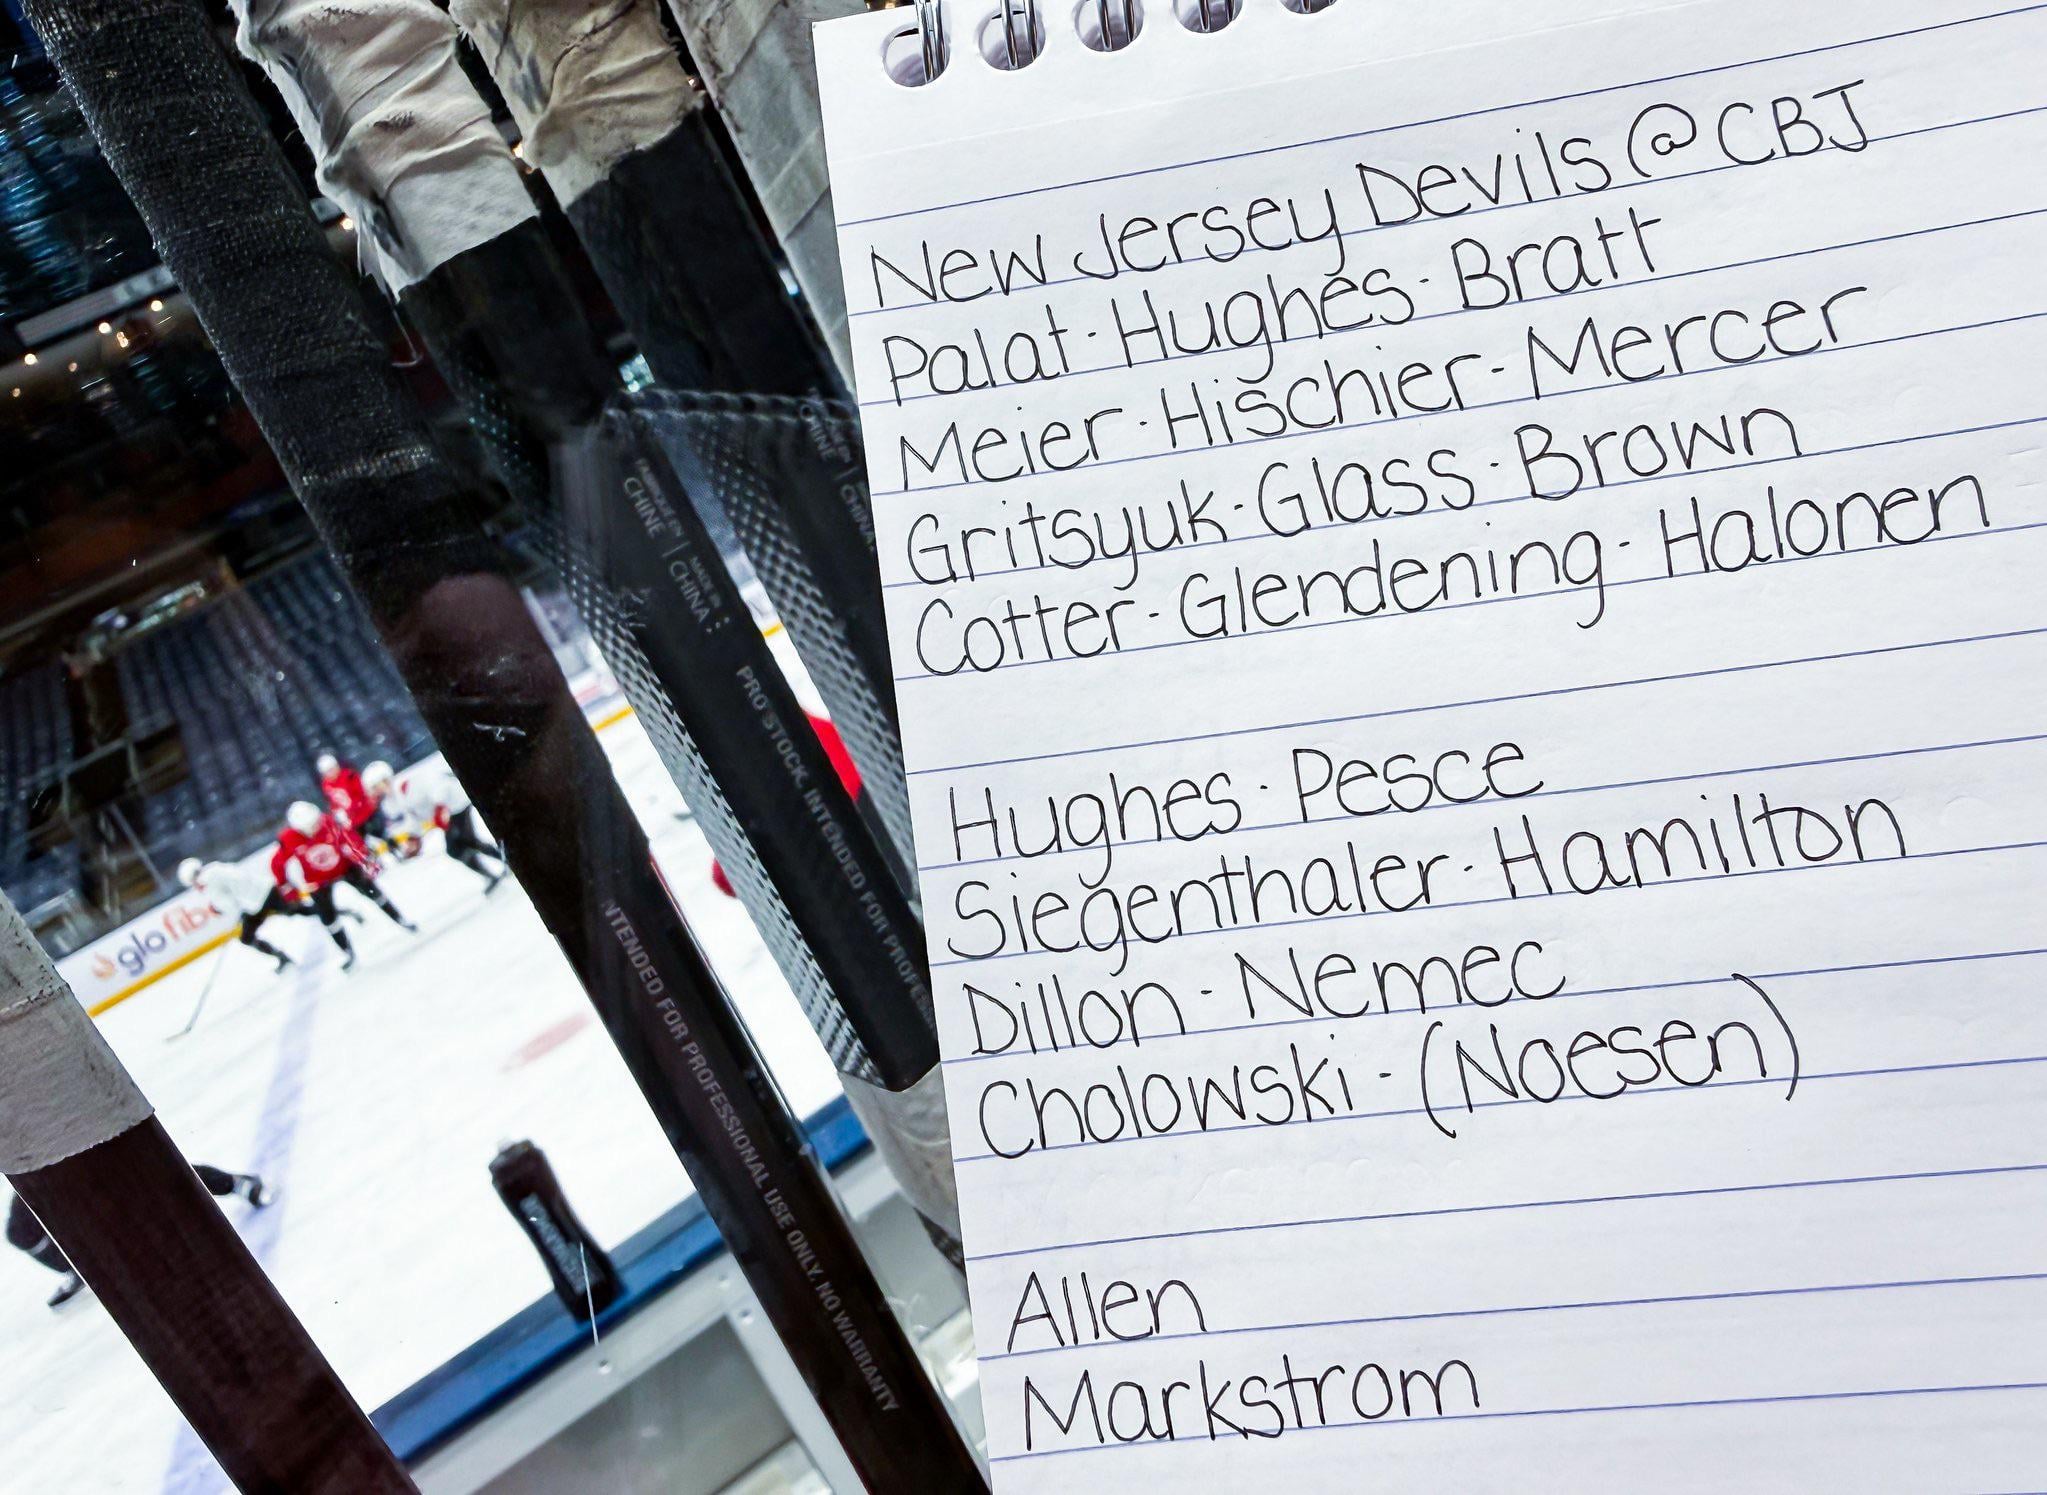 New Jersey Devils @ CBJ
Palat · Hughes · Bratt
Meier · Hischier · Mercer
Gritsyuk · Glass · Brown
Cotter · Glendening · Halonen
Hughes · Pesce
Siegenthaler · Hamilton
Dillon · Nemec
Cholowski · (Noesen)
Allen
Markstrom
CHINE | CHINA
PRO STOCK, INTENDED FOR PROFES
NTENDED FOR PROFESSIONAL USE ONLY, NO WARRANTY
CHINE | CHINA
glo fib